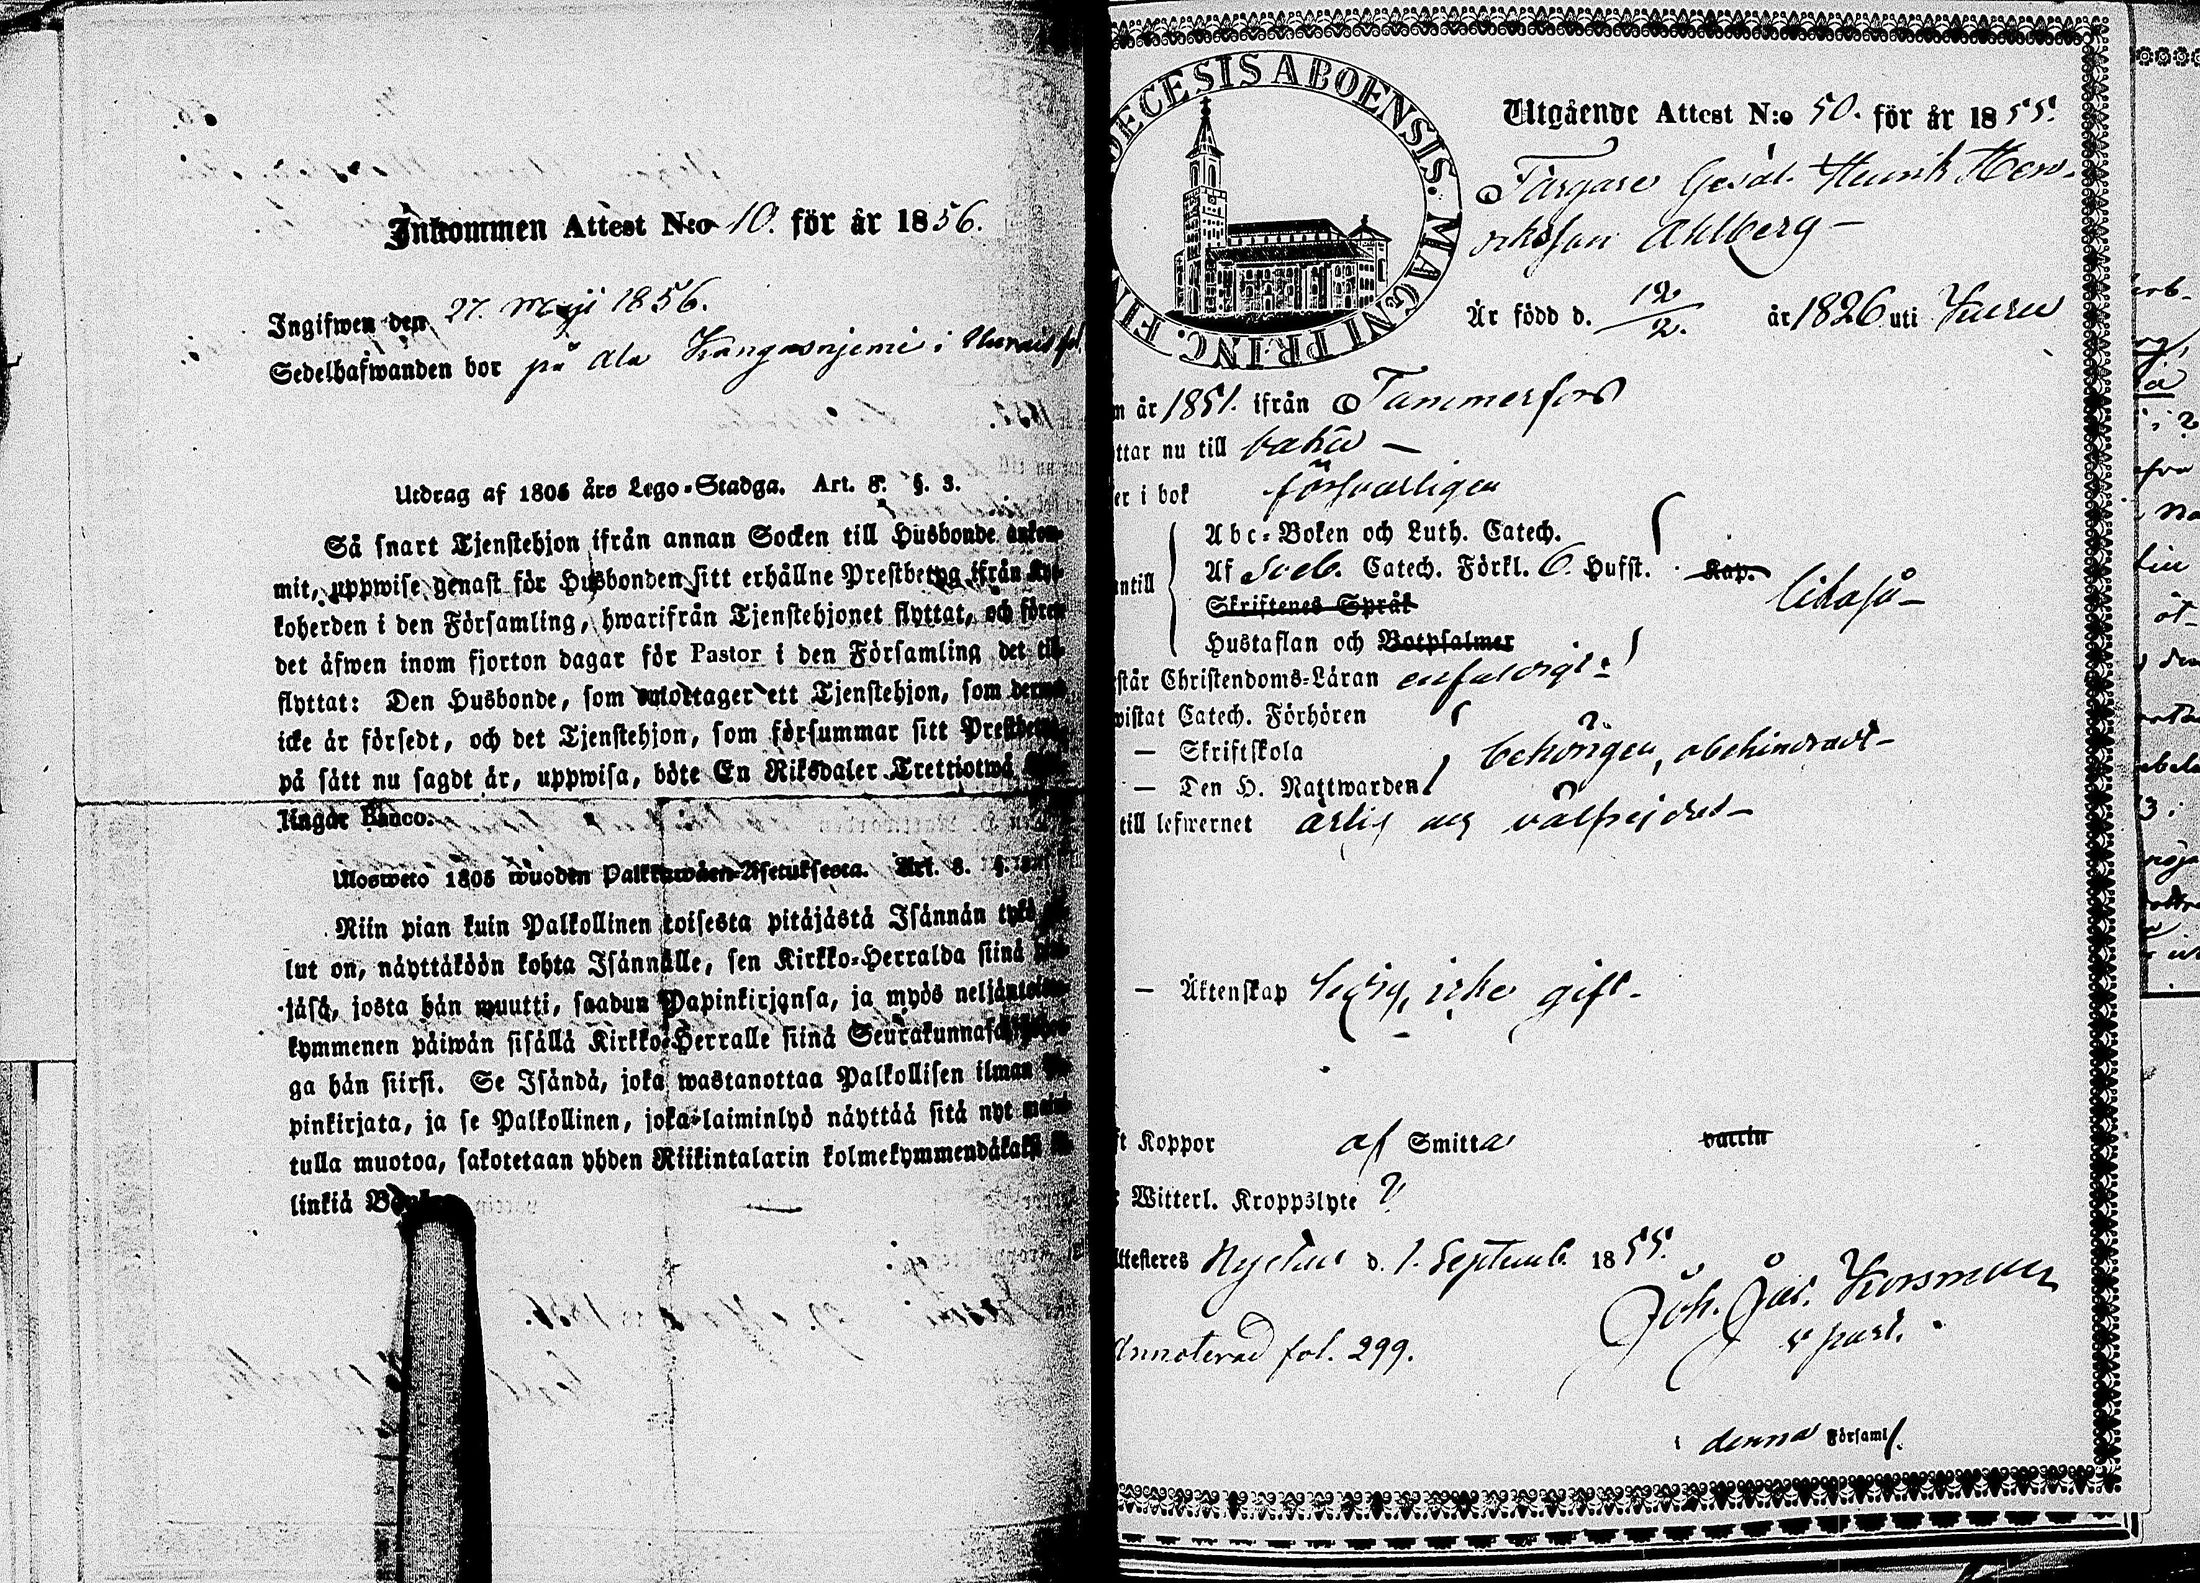 Inkommen Attest N:o 10. för år 1856.
Ingifwen den 27. Maji 1856.
Sedelhafwanden bor på Ala Kangasnjemi i
Utdrag af 1805 års Lego-Stadga. Art. 8. §. 3.
Så snart Tjenstehjon ifrån annan Socken till Husbonde ankom-
mit, uppwise genast för Husbonden sitt erhållne Prestbetyg ifrån Kyr-
koherden i den Församling, hwarifrån Tjenstehjonet flyttat, och förete
det äfwen inom fjorton dagar för Pastor i den Församling det till-
flyttat: Den Husbonde, som emottager ett Tjenstehjon, som dermed
icke är försedt, och det Tjenstehjon, som försummar sitt Prestbetyg,
på sätt nu sagdt är, uppwisa, böte En Riksdaler Trettiotwå
lingar Banco.
Ulosweto 1805 wuoden Palkkawäen-Asetuksesta. Art. 8. §.
Niin pian kuin Palkollinen toisesta pitäjästä Isännän tykö
lut on, näyttäköön kohta Isännälle, sen Kirkko-Herralda siinä
jäsä, josta hän muutti, saadun Papinkirjansa, ja myös neljäntoista-
kymmenen päiwän sisällä Kirkko-Herralle siinä Seurakunnasa,
ga hän siirsi. Se Isändä, joka wastanottaa Palkollisen ilman
pinkirjata, ja se Palkollinen, joka laiminlyö näyttää sitä nyt
tulla muotoa, sakotetaan yhden Riikintalarin kolmekymmendäkaksi
linkiä
DECESIS ABOENSIS. MAGNI PRINC. FIN
Utgående Attest N:o 50. för år 1855.
Färgare Gesäl. Henrik Hen-
riksson Ahlberg –
Är född d. 12/2. år 1826 uti Kuru
m år 1851. ifrån Tammerfors
ttar nu till baka –
er i bok försvarligen
Abc-Boken och Luth. Catech.
Af Sveb. Catech. Förkl. 6. Hufst. Kap.
ntill likaså –
Skriftenes Språk
Hustaflan och Botpsalmer
står Christendoms-Läran enfaldigt
wistat Catech. Förhören
– Skriftskola behörigen, obehindradt –
– Den H. Nattwarden
till lefwernet ärlig och välfrejdad –
– Äktenskap ledig, icke gift.
ft Koppor af Smitta vaccin
Witterl. Kroppslyte ?
Attesteres Nystad d. 1. Septemb. 1855.
Joh. Jac. Korsman
v past.
Annoterad fol. 299.
i denna Församl.